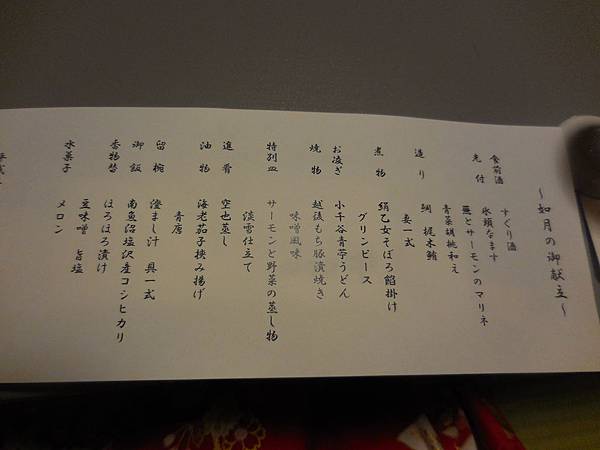 ～如月の御献立～
食前酒 すぐり酒
先付 氷頭なます
蕪とサーモンのマリネ
青菜胡桃和え
造り 鯛 梶木鮪
妻一式
煮物 絹乙女そぼろ餡掛け
グリンピース
お凌ぎ 小千谷青苧うどん
焼物 越後もち豚漬焼き
味噌風味
特別皿 サーモンと野菜の蒸し物
淡雪仕立て
進肴 空也蒸し
油物 海老茄子挟み揚げ
青唐
留椀 澄まし汁 具一式
御飯 南魚沼塩沢産コシヒカリ
香物替 ほろほろ漬け
豆味噌 旨塩
水菓子 メロン